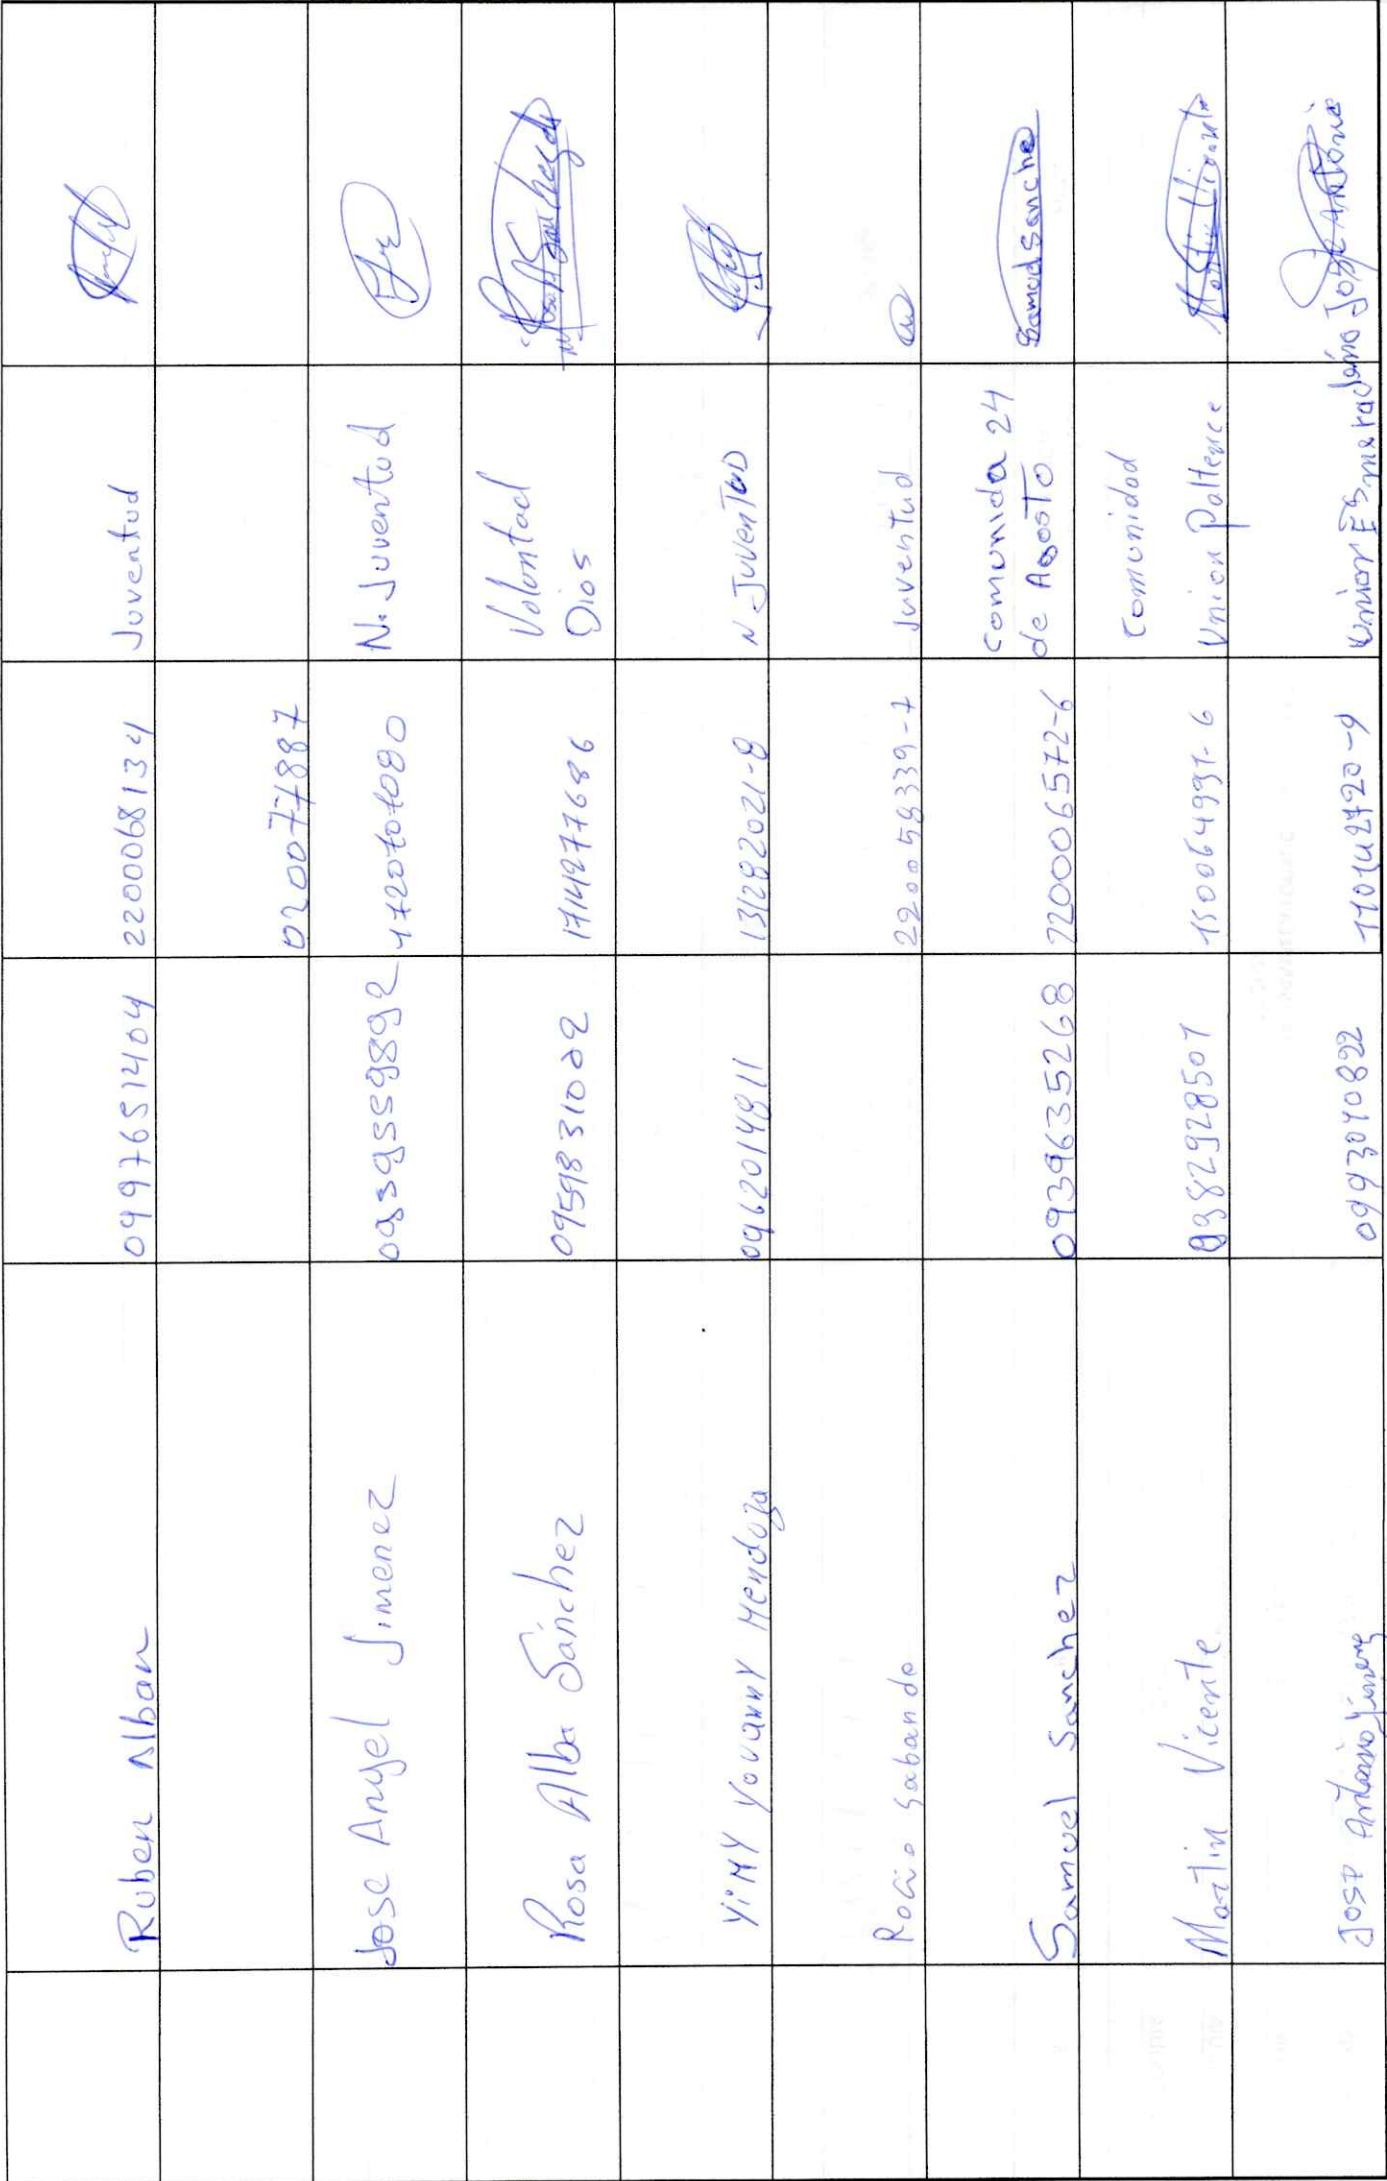 Ruben Alban 0997651404 2200068134 Juventud
020077887
Jose Angel Jimenez 0939559892 1720707080 N. Juventud
Rosa Alba Sánchez 0959831002 1714277686 Voluntad
Dios
Yimy Yovanny Mendoza 0962014911 131282021-8 N Juventud
Rocio Sabando 220058339-7 Juventud
Samuel Sanchez 0939635268 220006572-6 Comunida 24
de Agosto Samuel Sanche
Martin Vicente 0982928507 150064991-6 Comunidad
Union Paltence Martin Vicente
Jose Antonio Jimenez 0993040822 110142720-9 Union Esmeraldeño Jose Antonio